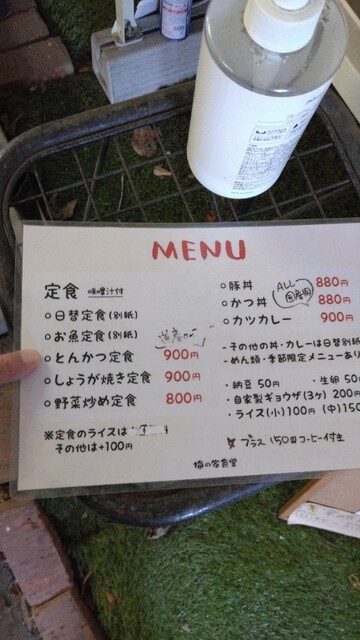 MENU
定食 味噌汁付
○日替定食(別紙)
○お魚定食(別紙)
○とんかつ定食 900円
○しょうが焼き定食 900円
○野菜炒め定食 800円
※定食のライスは
その他は+100円
○豚丼 880円
○かつ丼 880円
○カツカレー 900円
ALL
-その他の丼・カレーは日替別紙
-めん類・季節限定メニューあり
・納豆 50円 ・生卵 50
・自家製ギョウザ(3ヶ) 200円
・ライス(小)100円 (中)150
プラス 150円コーヒー付き
梅の家食堂